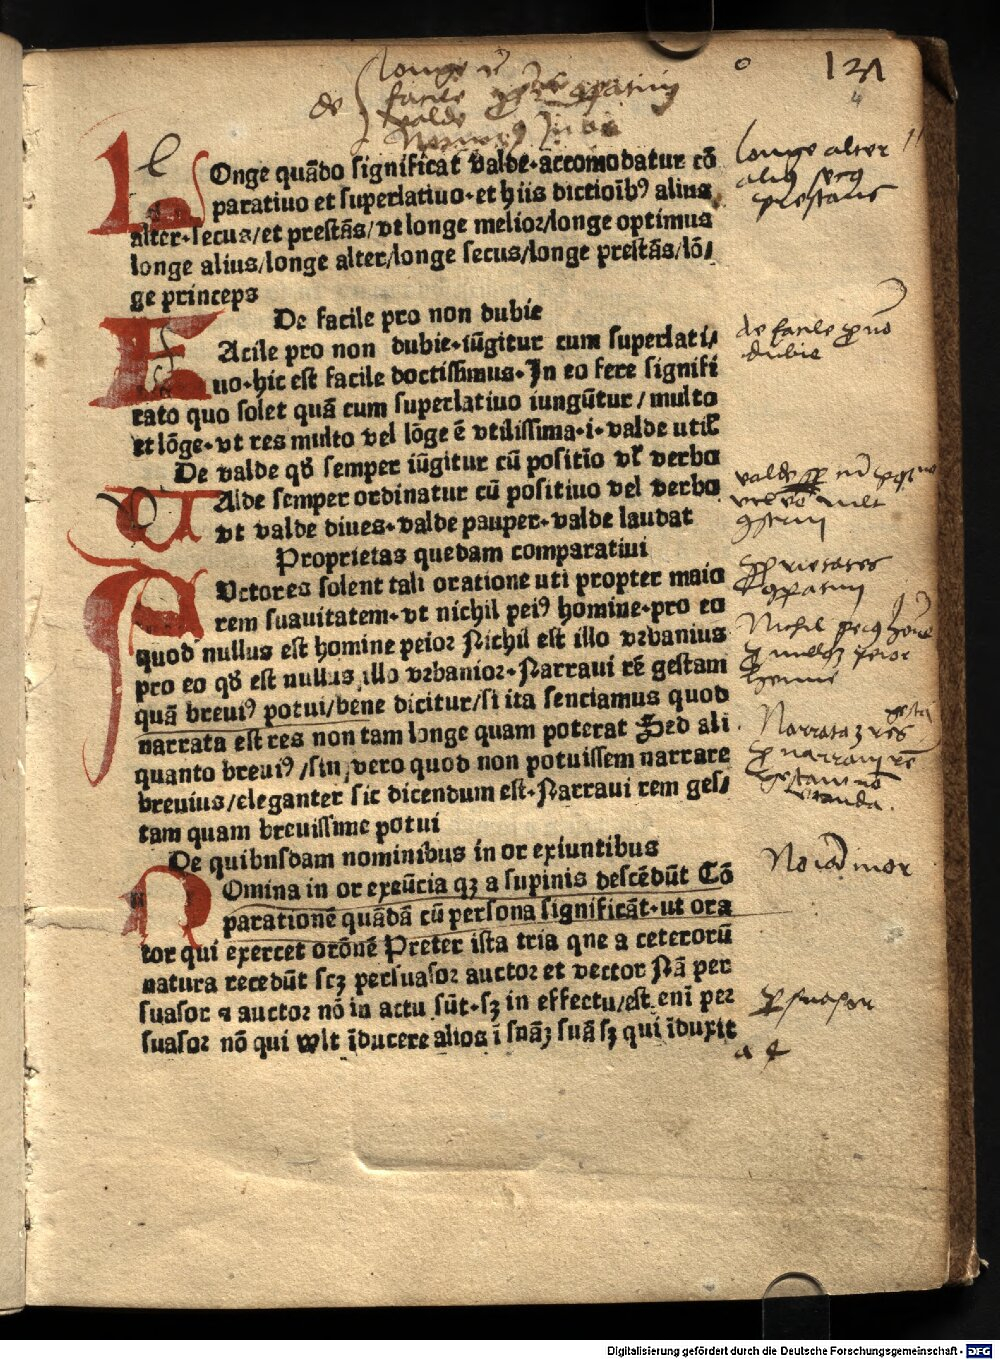 de
longe
facile
valde
o
131
4
l
LOnge quādo significat valde·accomodatur cō
paratiuo et superlatiuo·et hiis dictioībꝰ alius
alter·secus/et prestās/vt longe melior/longe optimus
longe alius/longe alter/longe secus/longe prestās/lō/
ge princeps
longe alter
prestans
De facile pro non dubie
FAcile pro non dubie·iūgitur cum superlati/
uo·hic est facile doctissimus·In eo fere signifi
cato quo solet quā cum superlatiuo iungūtur/multo
et lōge·vt res multo vel lōge ē vtilissima·i·valde utiƚ
de facile ꝓ nō
dubie
De valde qđ semper iūgitur cū positio vƚ verbo
UAlde semper ordinatur cū positiuo vel verbo
vt valde diues·valde pauper·valde laudat
valde
Proprietas quedam comparatiui
AUctores solent tali oratione uti propter maio
rem suauitatem·vt nichil peiꝰ homine·pro eo
quod nullus est homine peior Nichil est illo vrbanius
pro eo qđ est nullus illo vrbanior·Narraui rē gestam
quā breuiꝰ potui/bene dicitur/si ita senciamus quod
narrata est res non tam longe quam poterat Sed ali
quanto breuiꝰ/sin vero quod non potuissem narrare
breuius/eleganter sic dicendum est·Narraui rem ges/
tam quam breuissime potui
Nichil
De quibusdam nominibus in or exiuntibus
NOmina in or exeūcia qꝫ a supinis descēdūt Cō
parationē quādā cū persona significāt·ut ora
tor qui exercet orōnē Preter ista tria que a ceterorū
natura recedūt scꝫ persuasor auctor et vector Nā per
suasor ⁊ auctor nō in actu sūt·sꝫ in effectu/est enī per
suasor nō qui wlt īducere alios ī suāꝫ suā sꝫ qui īduxit
a 4
Digitalisierung gefördert durch die Deutsche Forschungsgemeinschaft - DFG